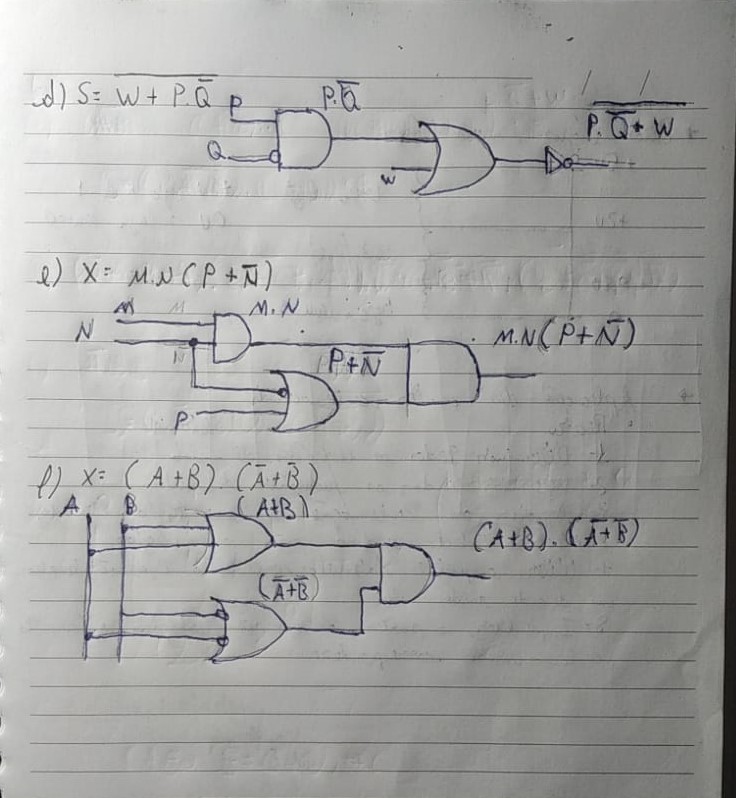 d) S= \overline{W + P.\overline{Q}}
P
P.Q̅
Q
W
\overline{P.\overline{Q} + W}
e) X= M.N (P + N̅)
M
M.N
N
N
P+N̅
M.N(P+N̅)
P
f) X= (A+B) (A̅+B̅)
A B
(A+B)
(A+B).(A̅+B̅)
(A̅+B̅)